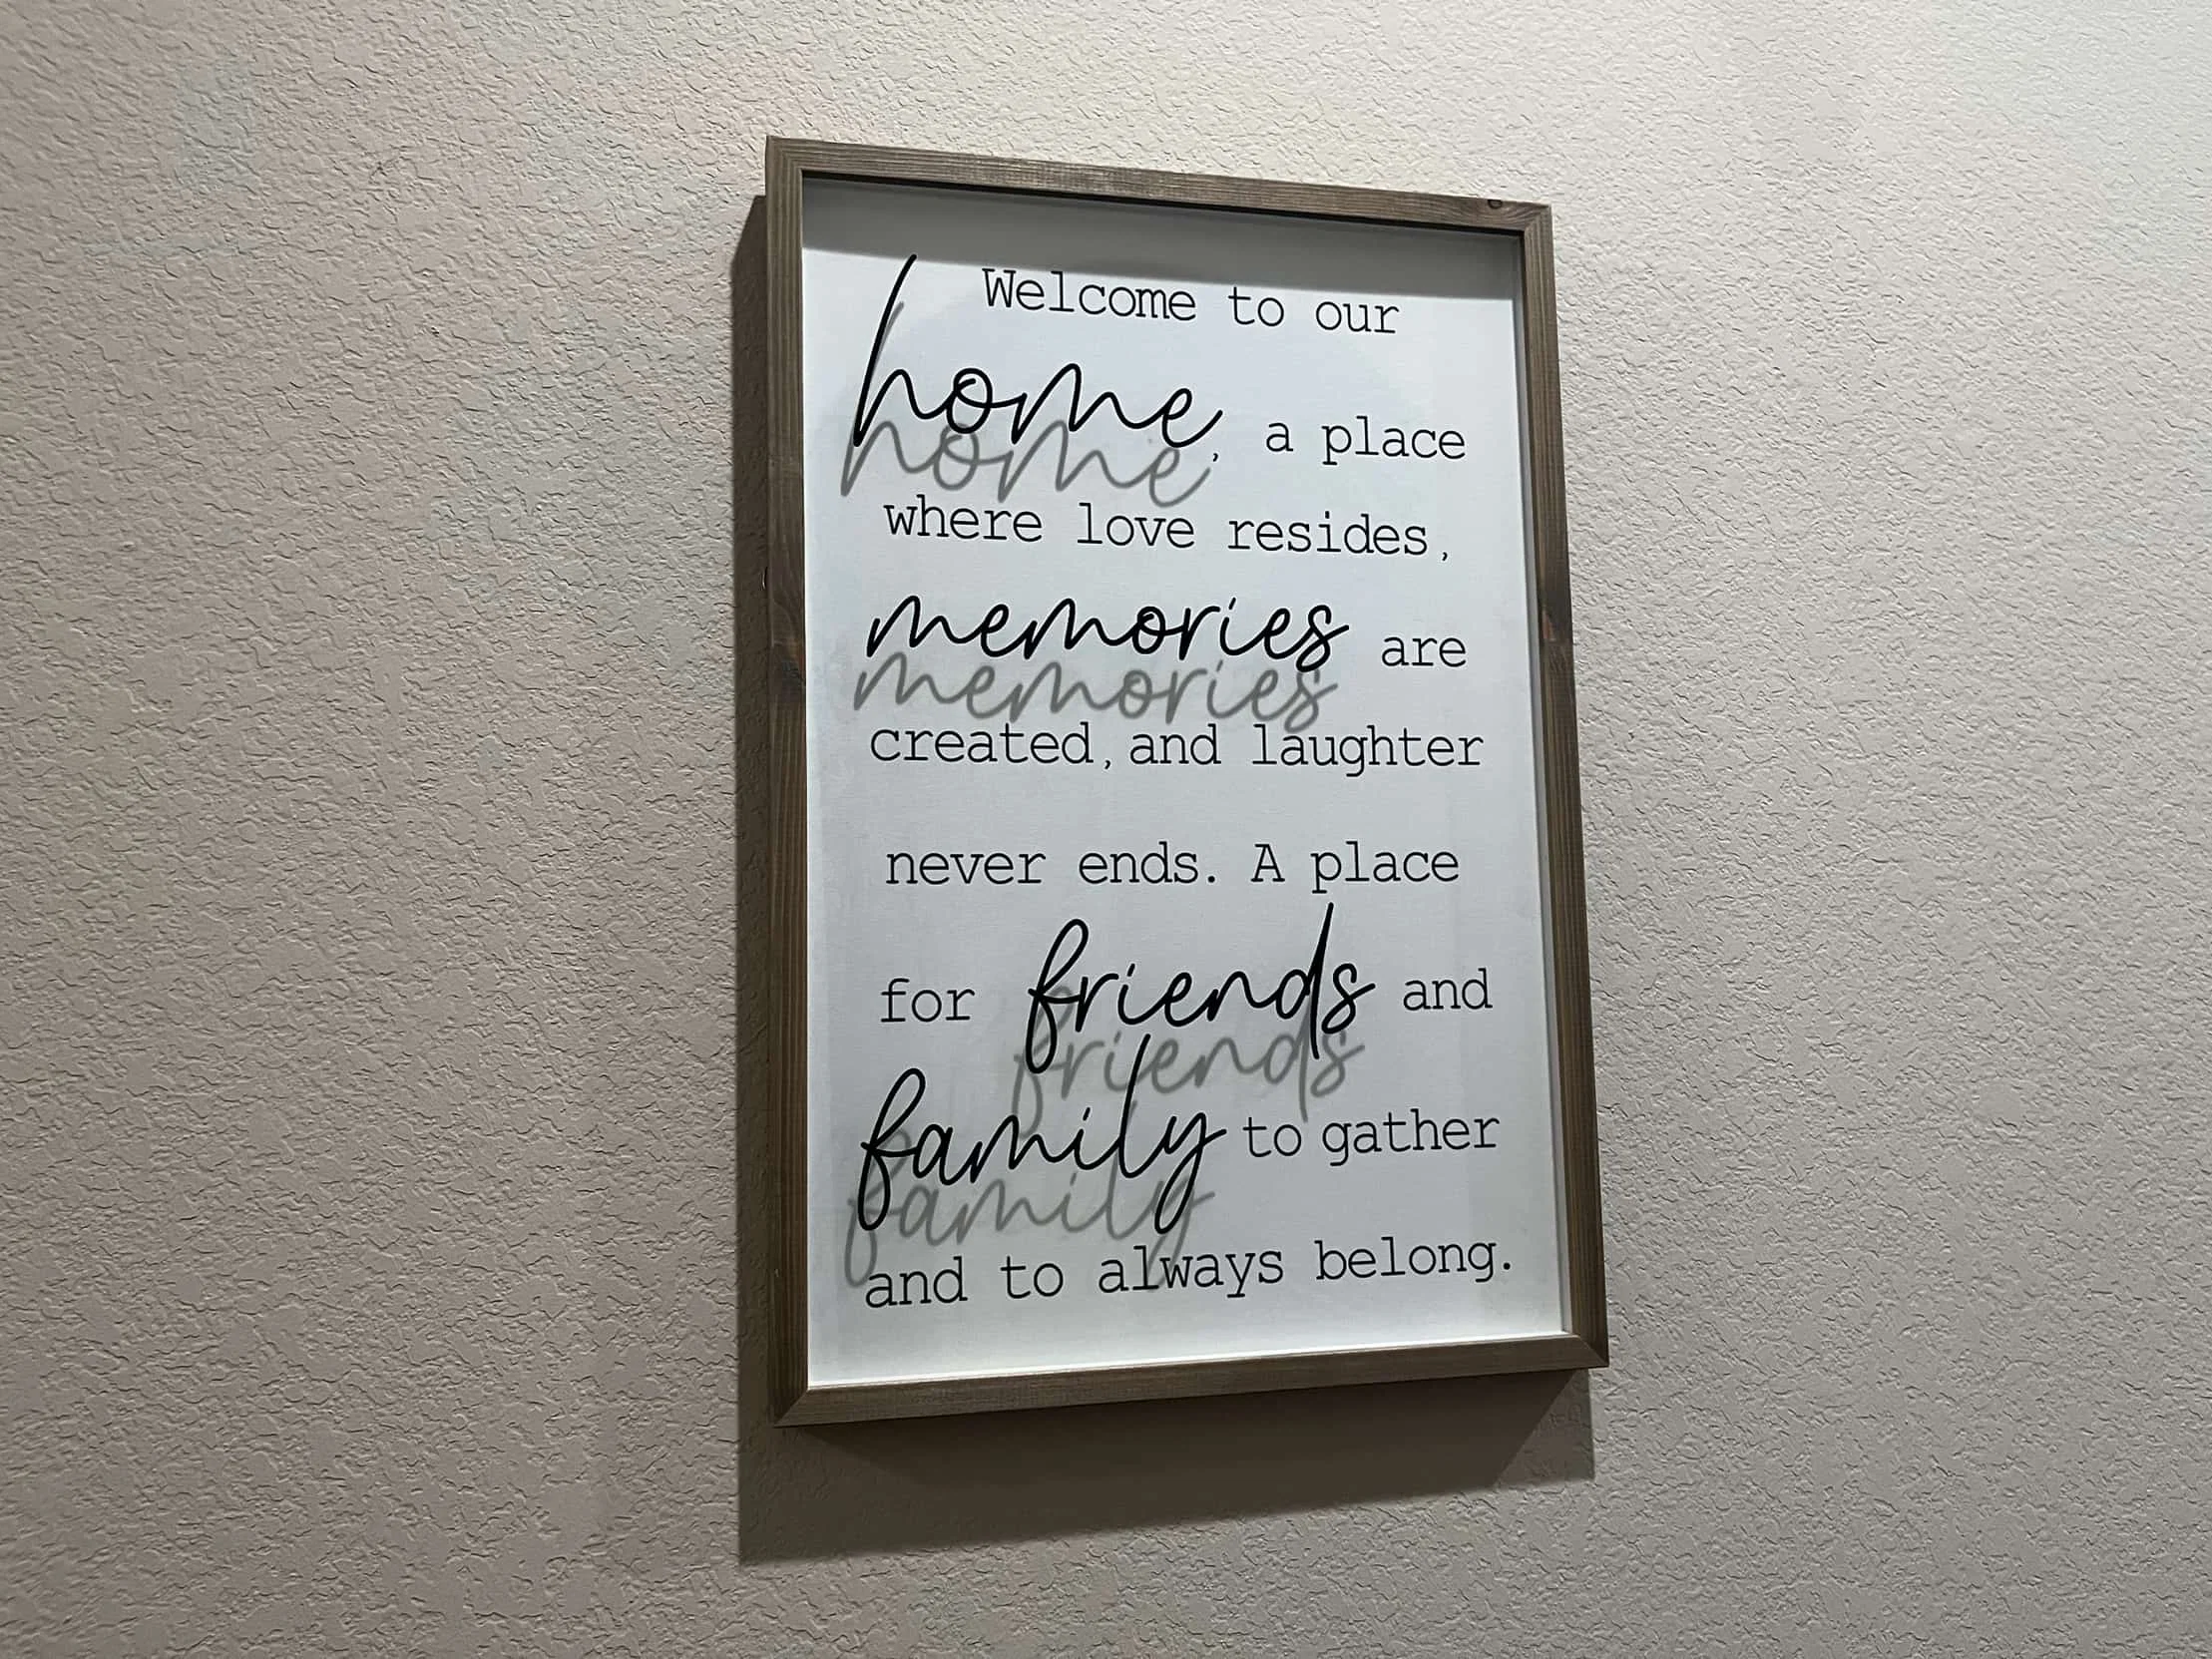 Welcome to our
home, a place
where love resides,
memories are
created, and laughter
never ends. A place
for friends and
family to gather
and to always belong.